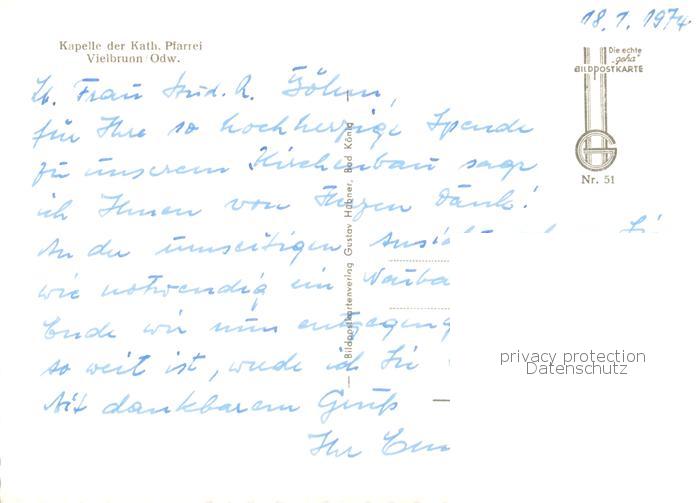 18. 1. 1974
Kapelle der Kath. Pfarrei
Vielbrunn Odw.
Die echte
„geha"
BILDPOSTKARTE
Nr. 51
Lb. Frau Stud. R. Böhm,
für Ihre so hochherzige Spende
zu unserem Kirchenbau sage
ich Ihnen von Herzen Dank!
An der umseitigen
wie notwendig ein
Ende wir nun
so weit ist, werde ich Sie
Mit dankbarem Gruß
Ihr
— Bildpostkartenverlag Gustav Hübner, Bad König
privacy protection
Datenschutz